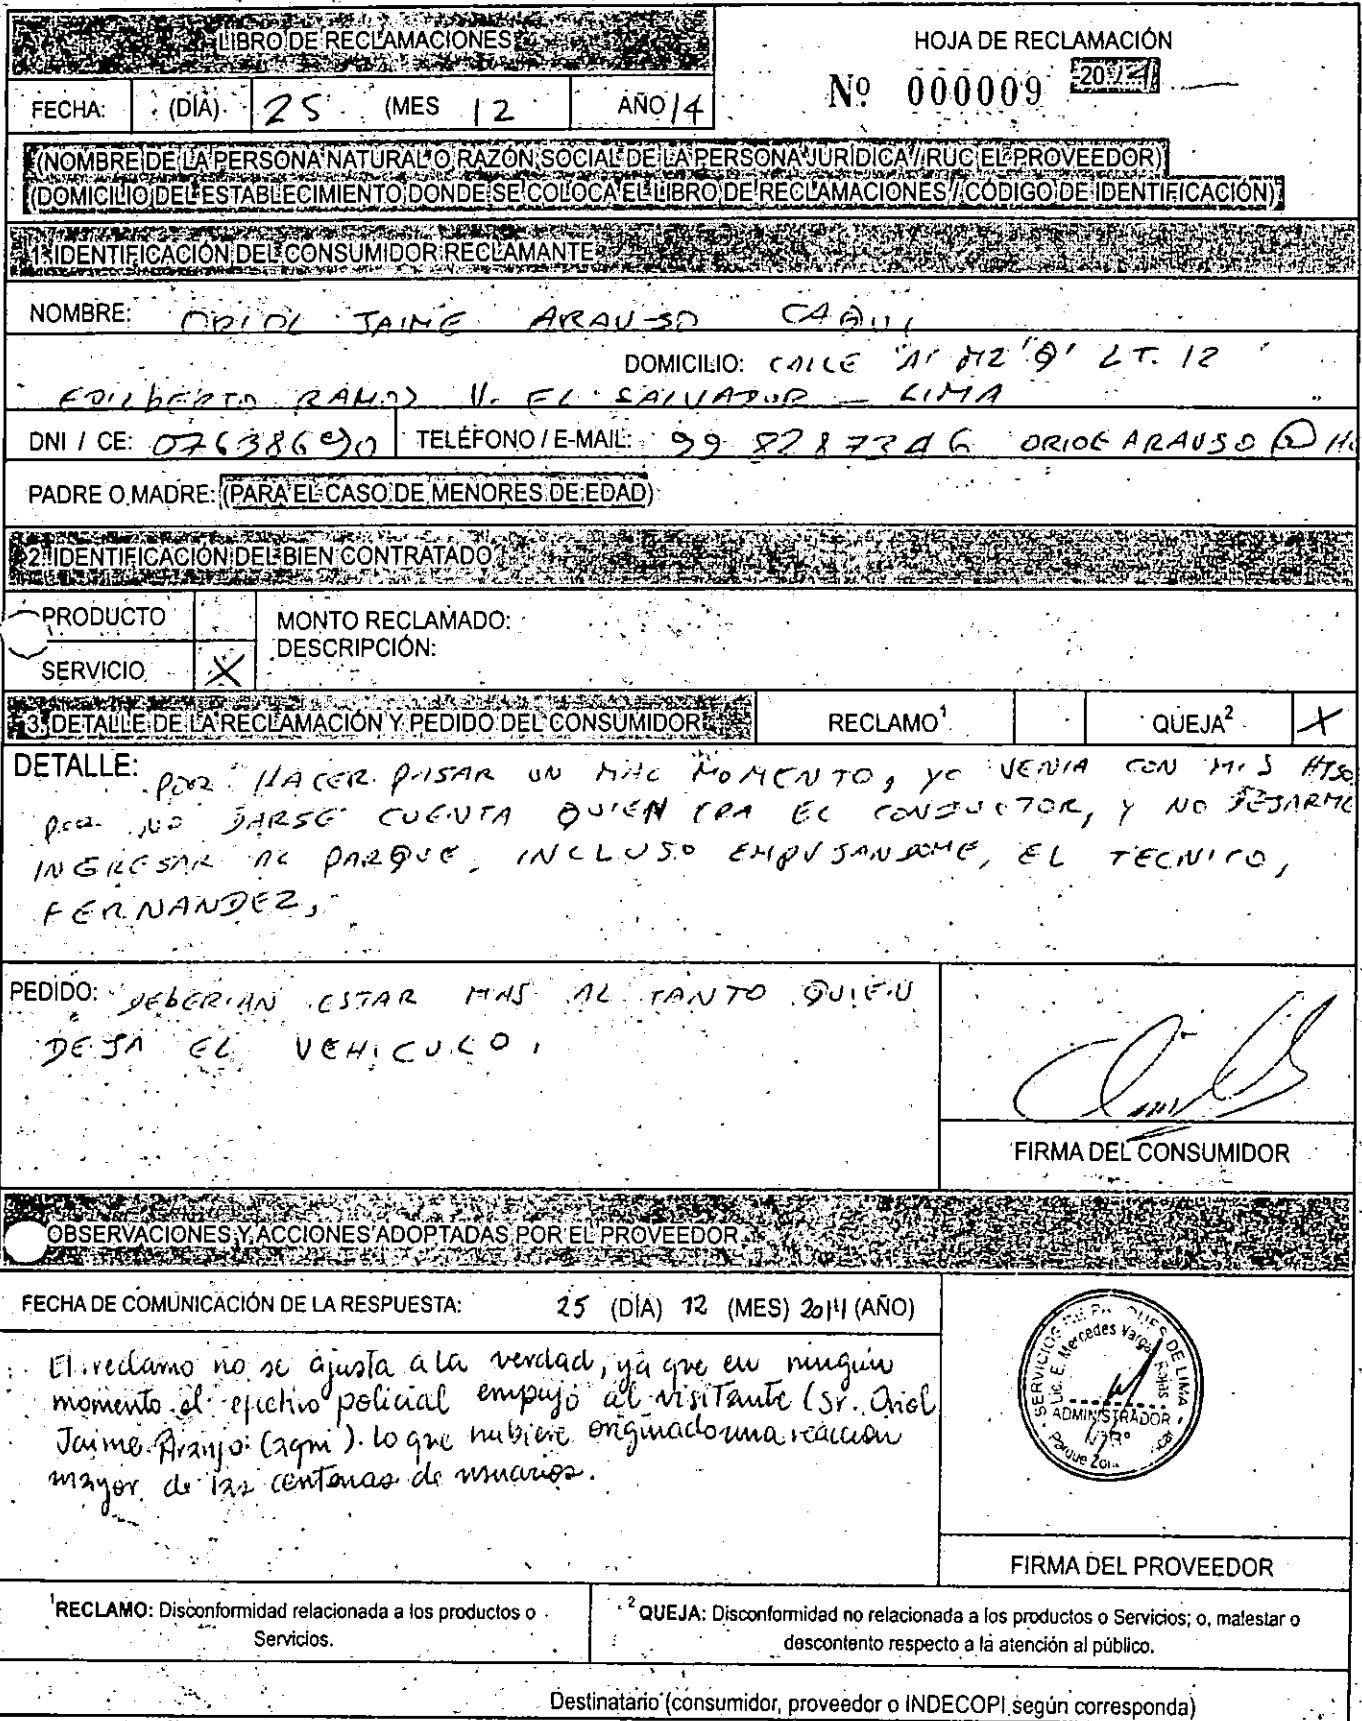 LIBRO DE RECLAMACIONES
HOJA DE RECLAMACIÓN
Nº 000009 -20
FECHA: (DÍA) 25 (MES 12 AÑO 14
(NOMBRE DE LA PERSONA NATURAL O RAZÓN SOCIAL DE LA PERSONA JURÍDICA / RUC EL PROVEEDOR)
(DOMICILIO DEL ESTABLECIMIENTO DONDE SE COLOCA EL LIBRO DE RECLAMACIONES / CÓDIGO DE IDENTIFICACIÓN)
1. IDENTIFICACIÓN DEL CONSUMIDOR RECLAMANTE
NOMBRE: ORIOL JAIME ARAUSO CAQUI
DOMICILIO: CALLE "A" MZ "Q" LT. 12
EDILBERTO RAMOS V. EL SALVADOR - LIMA
DNI / CE: 07638690 TELÉFONO / E-MAIL: 99 8287346 ORIOLARAUSO @ Ho
PADRE O MADRE: (PARA EL CASO DE MENORES DE EDAD)
2. IDENTIFICACIÓN DEL BIEN CONTRATADO
PRODUCTO MONTO RECLAMADO:
SERVICIO X DESCRIPCIÓN:
3. DETALLE DE LA RECLAMACIÓN Y PEDIDO DEL CONSUMIDOR RECLAMO¹ QUEJA² X
DETALLE: POR HACER PASAR UN MAL MOMENTO, YO VENIA CON MIS HIJO
POR NO DARSE CUENTA QUIEN ERA EL CONDUCTOR, Y NO DEJARME
INGRESAR AL PARQUE, INCLUSO EMPUJANDOME, EL TECNICO,
FERNANDEZ,
PEDIDO: DEBERIAN ESTAR MAS AL TANTO QUIEN
DEJA EL VEHICULO.
FIRMA DEL CONSUMIDOR
OBSERVACIONES Y ACCIONES ADOPTADAS POR EL PROVEEDOR
FECHA DE COMUNICACIÓN DE LA RESPUESTA: 25 (DÍA) 12 (MES) 2014 (AÑO)
El reclamo no se ajusta a la verdad, ya que en ningún
momento el efectivo policial empujó al visitante (Sr. Oriol
Jaime Araujo Caqui). lo que hubiere originado una reacción
mayor de las centenas de usuarios.
SERVICIOS DE PARQUES DE LIMA
Lic. E. Mercedes Vargas Rojas
ADMINISTRADOR
Parque Zonal
FIRMA DEL PROVEEDOR
¹RECLAMO: Disconformidad relacionada a los productos o
Servicios.
² QUEJA: Disconformidad no relacionada a los productos o Servicios; o, malestar o
descontento respecto a la atención al público.
Destinatario (consumidor, proveedor o INDECOPI según corresponda)